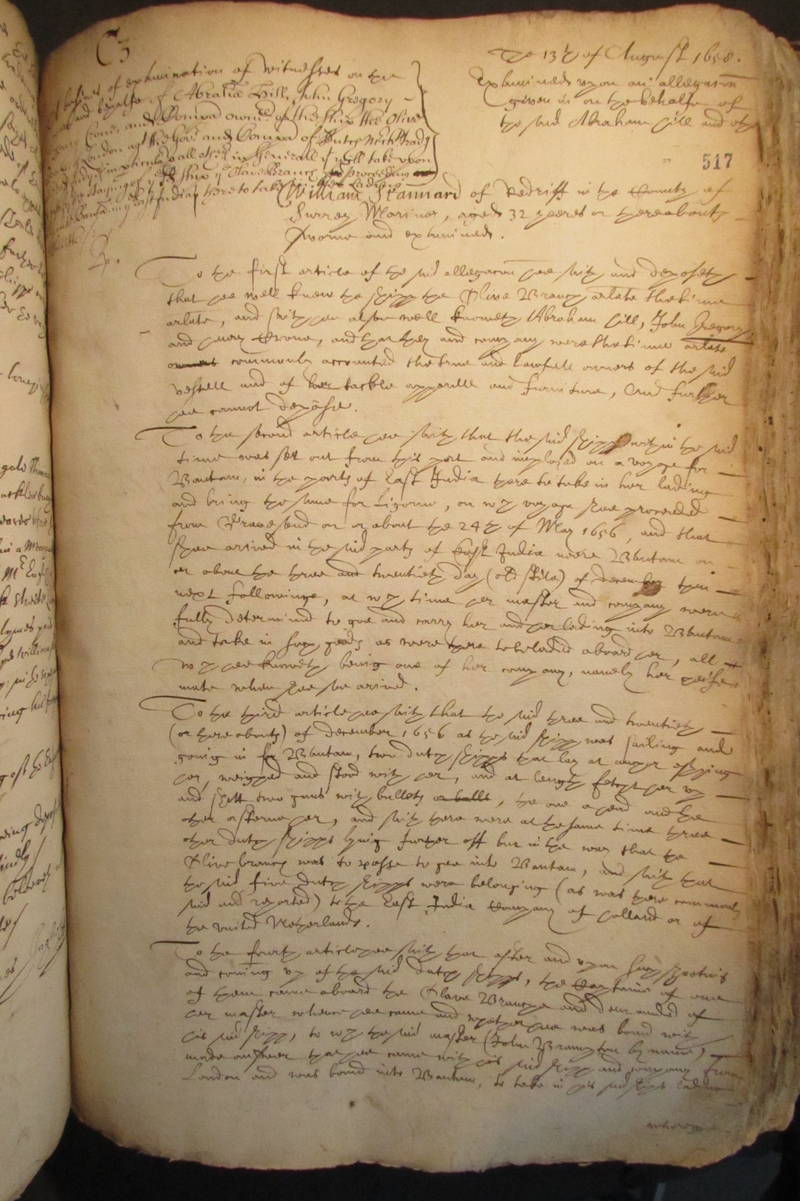 The 13th of August 1658.
Examined upon an allegation
given in on the behalfe of
the said Abraham Hill and others
517
of examination of witnesses on the
behalfe of Abraham Hill, John Gregory
and Company owners of the shipp the Olive
William Stannard of Redriff in the County of
Surrey Mariner, aged 32 yeeres or thereabouts
sworne and examined.
To the first article of the said allegation hee saith and deposeth
that hee well knew the shipp the Olive Branch arlate the time
arlate, and saith hee alsoe well knoweth Abraham Hill, John Gregory
and Crone, and that they and company were the time arlate
commonly accounted the true and lawfull owners of the said
vessell and of her tackle apparell and furniture, And further
hee cannot depose.
To the second article hee saith that the said shipp within the said
time was set out from this port and imployed on a voyage for
Bantam, in the parts of East India there to take in her lading
and bring the same for Ligorne, on which voyage shee proceeded
from Gravesend on or about the 24th of May 1656, and that
shee arrived in the said parts of East India neere Bantam on
or about the three and twentieth day (old stile) of december then
next following, at which time her master and company were
fully determined to goe and carry her and her lading into Bantam
and take in such goods as were there to be laden aboard her, all
which hee knoweth being one of her company, namely her
mate when shee soe arived.
To the third article hee saith that the said three and twentieth
(or thereabouts) of december 1656 as the said shipp was sailing and
going in for Bantam, two dutch shipps that lay at anchor espying
her, weighed and stood with her, and at length fetcht her up
and shott two guns with bullets or balls, the one ahead and the
other asterne her, and saith there were at the same time three
other dutch shipps lying further off but in the way that the
Olive branch was to passe to goe into Bantam, and saith that
the said five dutch shipps were belonging (as was there commonly
said and reported) to the East India Company of Holland or of
the United Netherlands.
To the fourth article hee saith that after and upon such shooting
and coming up of the said dutch shipps, the Captaine of one
of them came aboard the Olive Branch and demanded of
her master whence hee came and whether hee was bound with
his said shipp, to which the said master (John Brampton by name)
made answer that hee came with his said shipp and company from
London and was bound into Bantam, to take in his said shipps lading